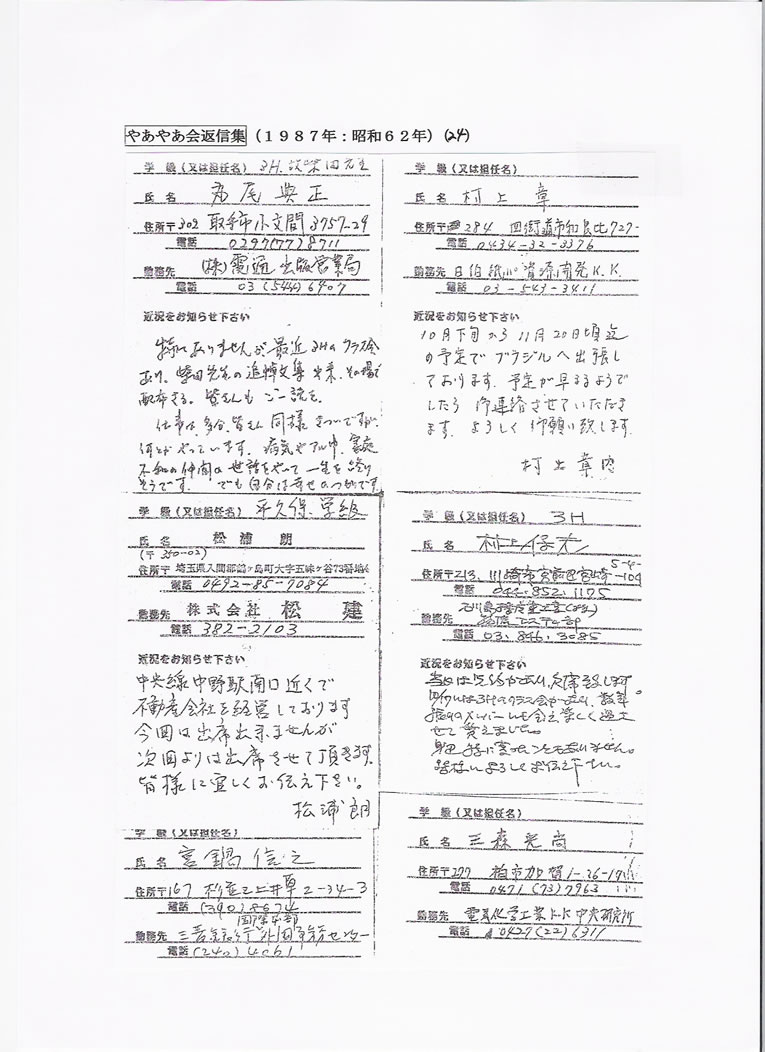 やあやあ会返信集（１９８７年：昭和６２年）(24)
学 級（又は担任名） 3H.
氏 名 典正
住所〒302 取手市小文間 3757-29
電話 0297(77)8711
勤務先 (株)電通 出版営業局
電話 03 (544) 6407
近況をお知らせ下さい
特にありませんが最近3Hのクラス会
あり、柴田先生の追悼文集出来、その場で
配布する。皆さんもご一読を。
仕事は多分、皆さん同様きついですが、
何とかやっています。病気やアル中、家庭
不和の仲間の世話をやって一生を終り
そうです。でも自分は幸せのつもりです。
学 級（又は担任名） 平久保学級
氏 名 松浦 朗
(〒350-02)
住所〒 埼玉県入間郡鶴ヶ島町大字五味ヶ谷73番地
電話 0492-85-7084
勤務先 株式会社 松 建
電話 382-2103
近況をお知らせ下さい
中央線中野駅南口近くで
不動産会社を経営しております
今回は出席出来ませんが
次回よりは出席させて頂きます。
皆様に宜しくお伝え下さい。
松浦朗
学 級（又は担任名）
氏 名 宮鍋信之
住所〒167 杉並区上井草2-34-3
電話 (390)
勤務先
電話 (240) 4061
学 級（又は担任名）
氏 名 村上 章
住所〒284 四街道市和良比727-
電話 0434-32-3376
勤務先 日伯紙パルプ資源開発K.K.
電話 03-543-3411
近況をお知らせ下さい
10月下旬から11月20日頃迄
の予定でブラジルへ出張し
ております。予定が早まるようで
したら御連絡させていただき
ます。よろしく御願い致します。
村上章
学 級（又は担任名） 3H
氏 名 村上保
住所〒213. 川崎市宮前区宮崎 5-4-104
電話 044. 852. 1175
勤務先
電話 03. 846. 3085
近況をお知らせ下さい
当日は 欠席致します
3Hのクラス会
せて貰えました。
皆様によろしくお伝え下さい。
学 級（又は担任名）
氏 名 三森
住所〒277 柏市加賀1-26-19
電話 0471 (73) 7963
勤務先 電気化学工業K.K 中央研究所
電話 0427(22)6311